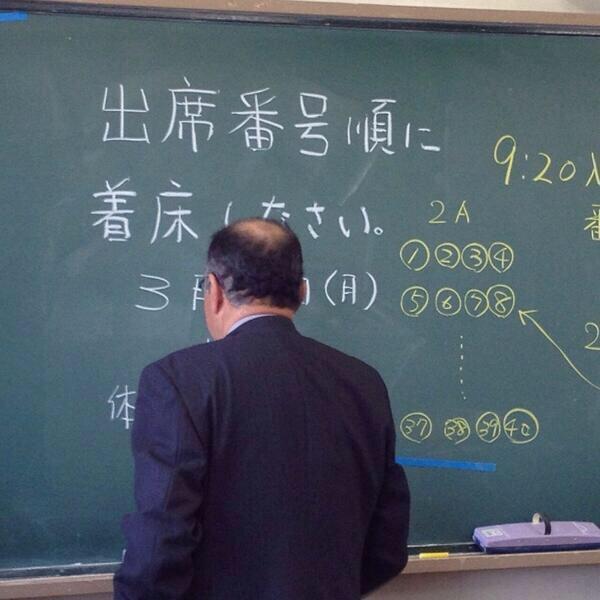 出席番号順に
着床ください。
3月 日(月)
体
9:20入
番
2A
① ② ③ ④
⑤ ⑥ ⑦ ⑧
㊲ ㊳ ㊴ ㊵
2